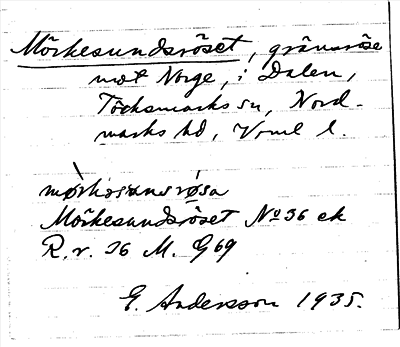 Mörkesundsröset, gränsröse
mot Norge, i Dalen,
Töcksmarks sn, Nord-
marks hd, Vrml l.
mørkəsunsrøsa
Mörkesundsröset No 36 ek
R.r. 36 M. G69
E. Andersson 1935.